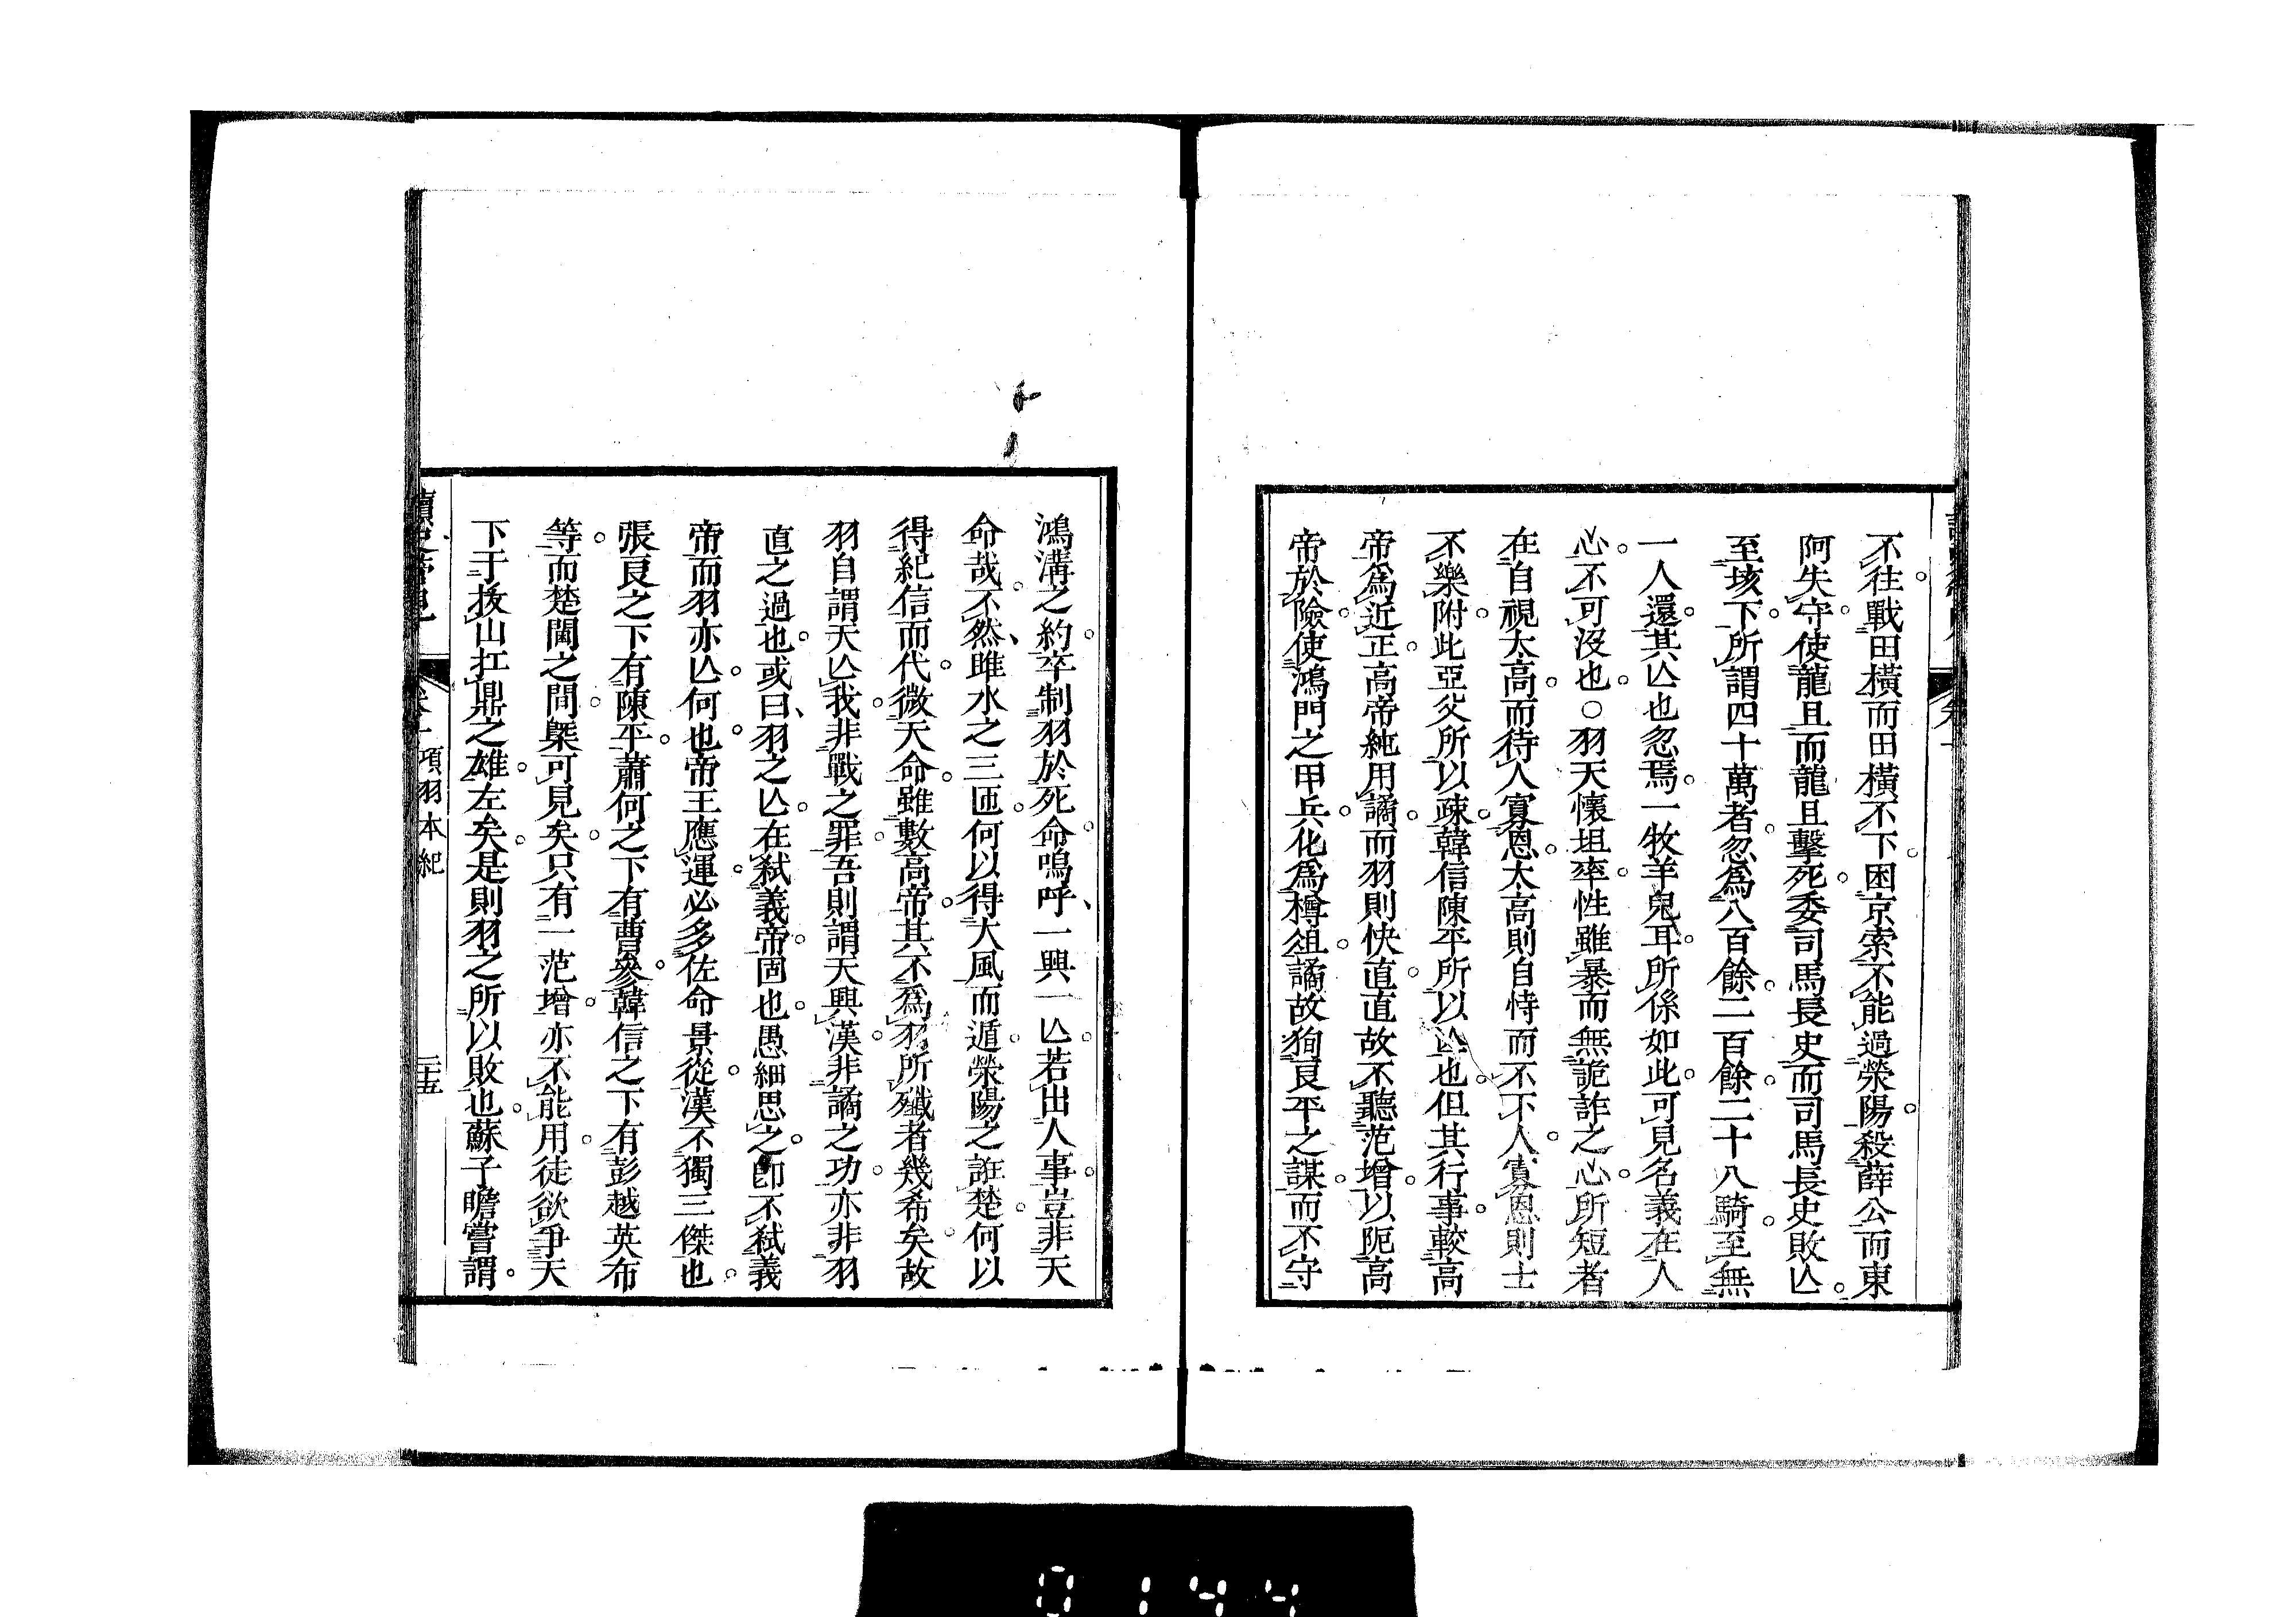 不往戰田橫而田橫不下。困京索不能過滎陽。殺薛公而東
阿失守。使龍且而龍且擊死。委司馬長史而司馬長史敗亾。
至垓下。所謂四十萬者。忽爲八百餘。二百餘。二十八騎。至無
一人還。其亾也忽焉。一牧羊兒耳。所係如此。可見名義在人
心。不可沒也。○羽天懷坦率。性雖暴而無詭詐之心。所短者
在自視太高。而待人寡恩。太高則自恃而不不人。寡恩則士
不樂附。此亞父所以疎。韓信陳平所以亾也。但其行事。較高
帝爲近正。高帝純用譎。而羽則快直。直故不聽范增。以阨高
帝於險。使鴻門之甲兵。化爲樽俎。譎故狥良平之謀。而不守
鴻溝之約。卒制羽於死命。嗚呼、一興一亾。若出人事。豈非天
命哉。不然、睢水之三匝。何以得大風而遁。滎陽之誑楚。何以
得紀信而代。微天命。雖數高帝。其不爲羽所殲者幾希矣。故
羽自謂天亾我。非戰之罪。吾則謂天興漢。非譎之功。亦非羽
直之過也。或曰、羽之亾。在弒義帝。固也。愚細思之。卽不弒義
帝而羽亦亾。何也。帝王應運。必多佐命景從。漢不獨三傑也。
張良之下有陳平。蕭何之下有曹參。韓信之下有彭越英布
等。而楚閫之間。槩可見矣。只有一范增。亦不能用。徒欲爭天
下于拔山扛鼎之雄。左矣。是則羽之所以敗也。蘇子瞻嘗謂。
項羽本紀
二十五
0144